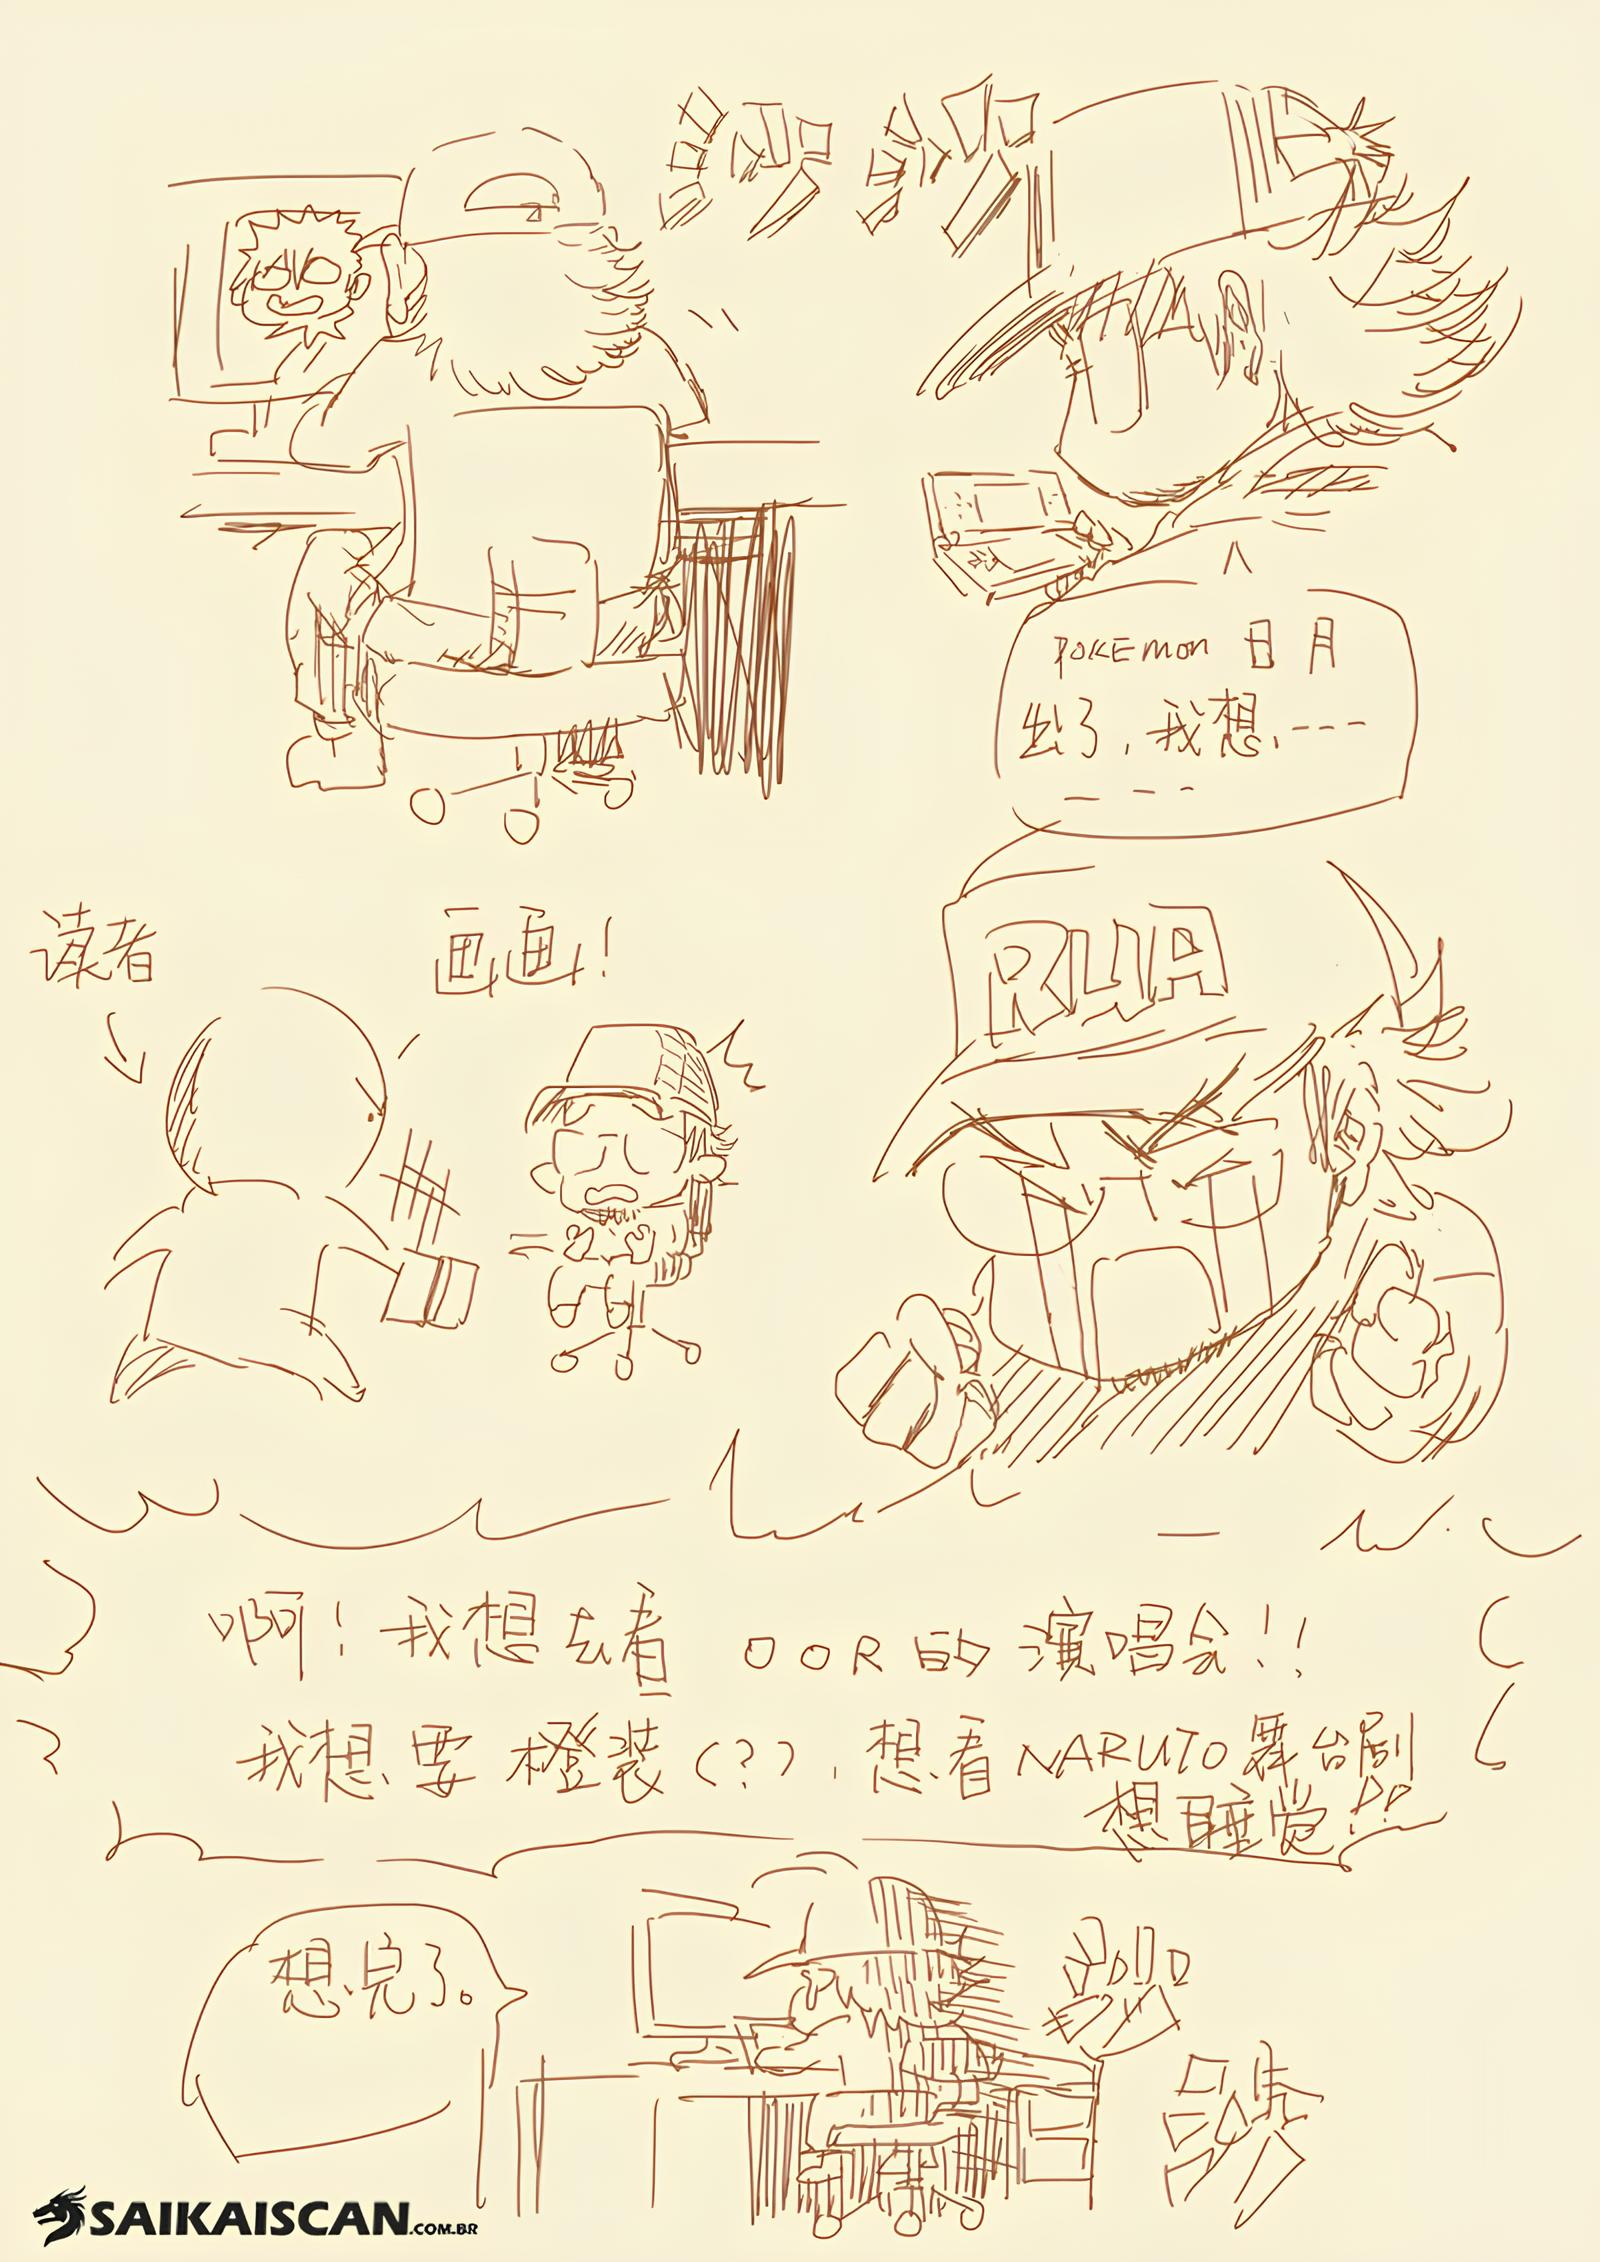 POKEMON 日月
出了，我想、---
---
读者
画画！
RUA
啊！我想去看 OOR的演唱会！！
我想要橙装（？），想看NARUTO舞台剧
想睡觉！！
想完了。
SAIKAISCAN.COM.BR